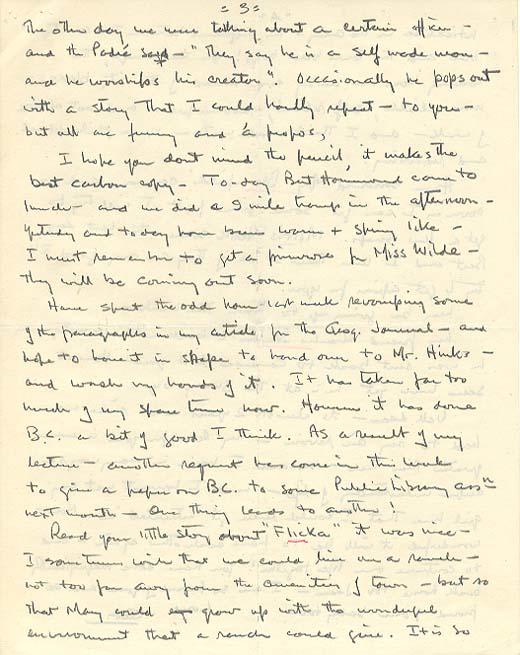 = 3 =
The other day we were talking about a certain officer -
and the Padré said - "They say he is a self made man -
and he worships his creator". Occasionally he pops out
with a story that I could hardly repeat - to you -
but all are funny and á propos,
I hope you don't mind the pencil, it makes the
best carbon copy - To-day Bert Hammond came to
lunch - and we did a 9 mile tramp in the afternoon -
Yesterday and to day have been warm + spring like -
I must remember to get a primrose for Miss Wilde -
They will be coming out soon.
Have spent the odd hour last week revamping some
of the paragraphs in my article for the Geog. Journal - and
hope to have it in shape to hand over to Mr. Hinks -
and wash my hands of it. It has taken far too
much of my spare time now. However it has done
B.C. a bit of good I think. As a result of my
lecture - another request has come in this week
to give a paper on B.C. to some Public Library assn
next month - One thing leads to another!
Read your little story about "Flicka" it was nice -
I sometimes wish that we could live on a ranch -
not too far away from the amenities of town - but so
that Mary could grow up with the wonderful
environment that a ranch could give. It is so